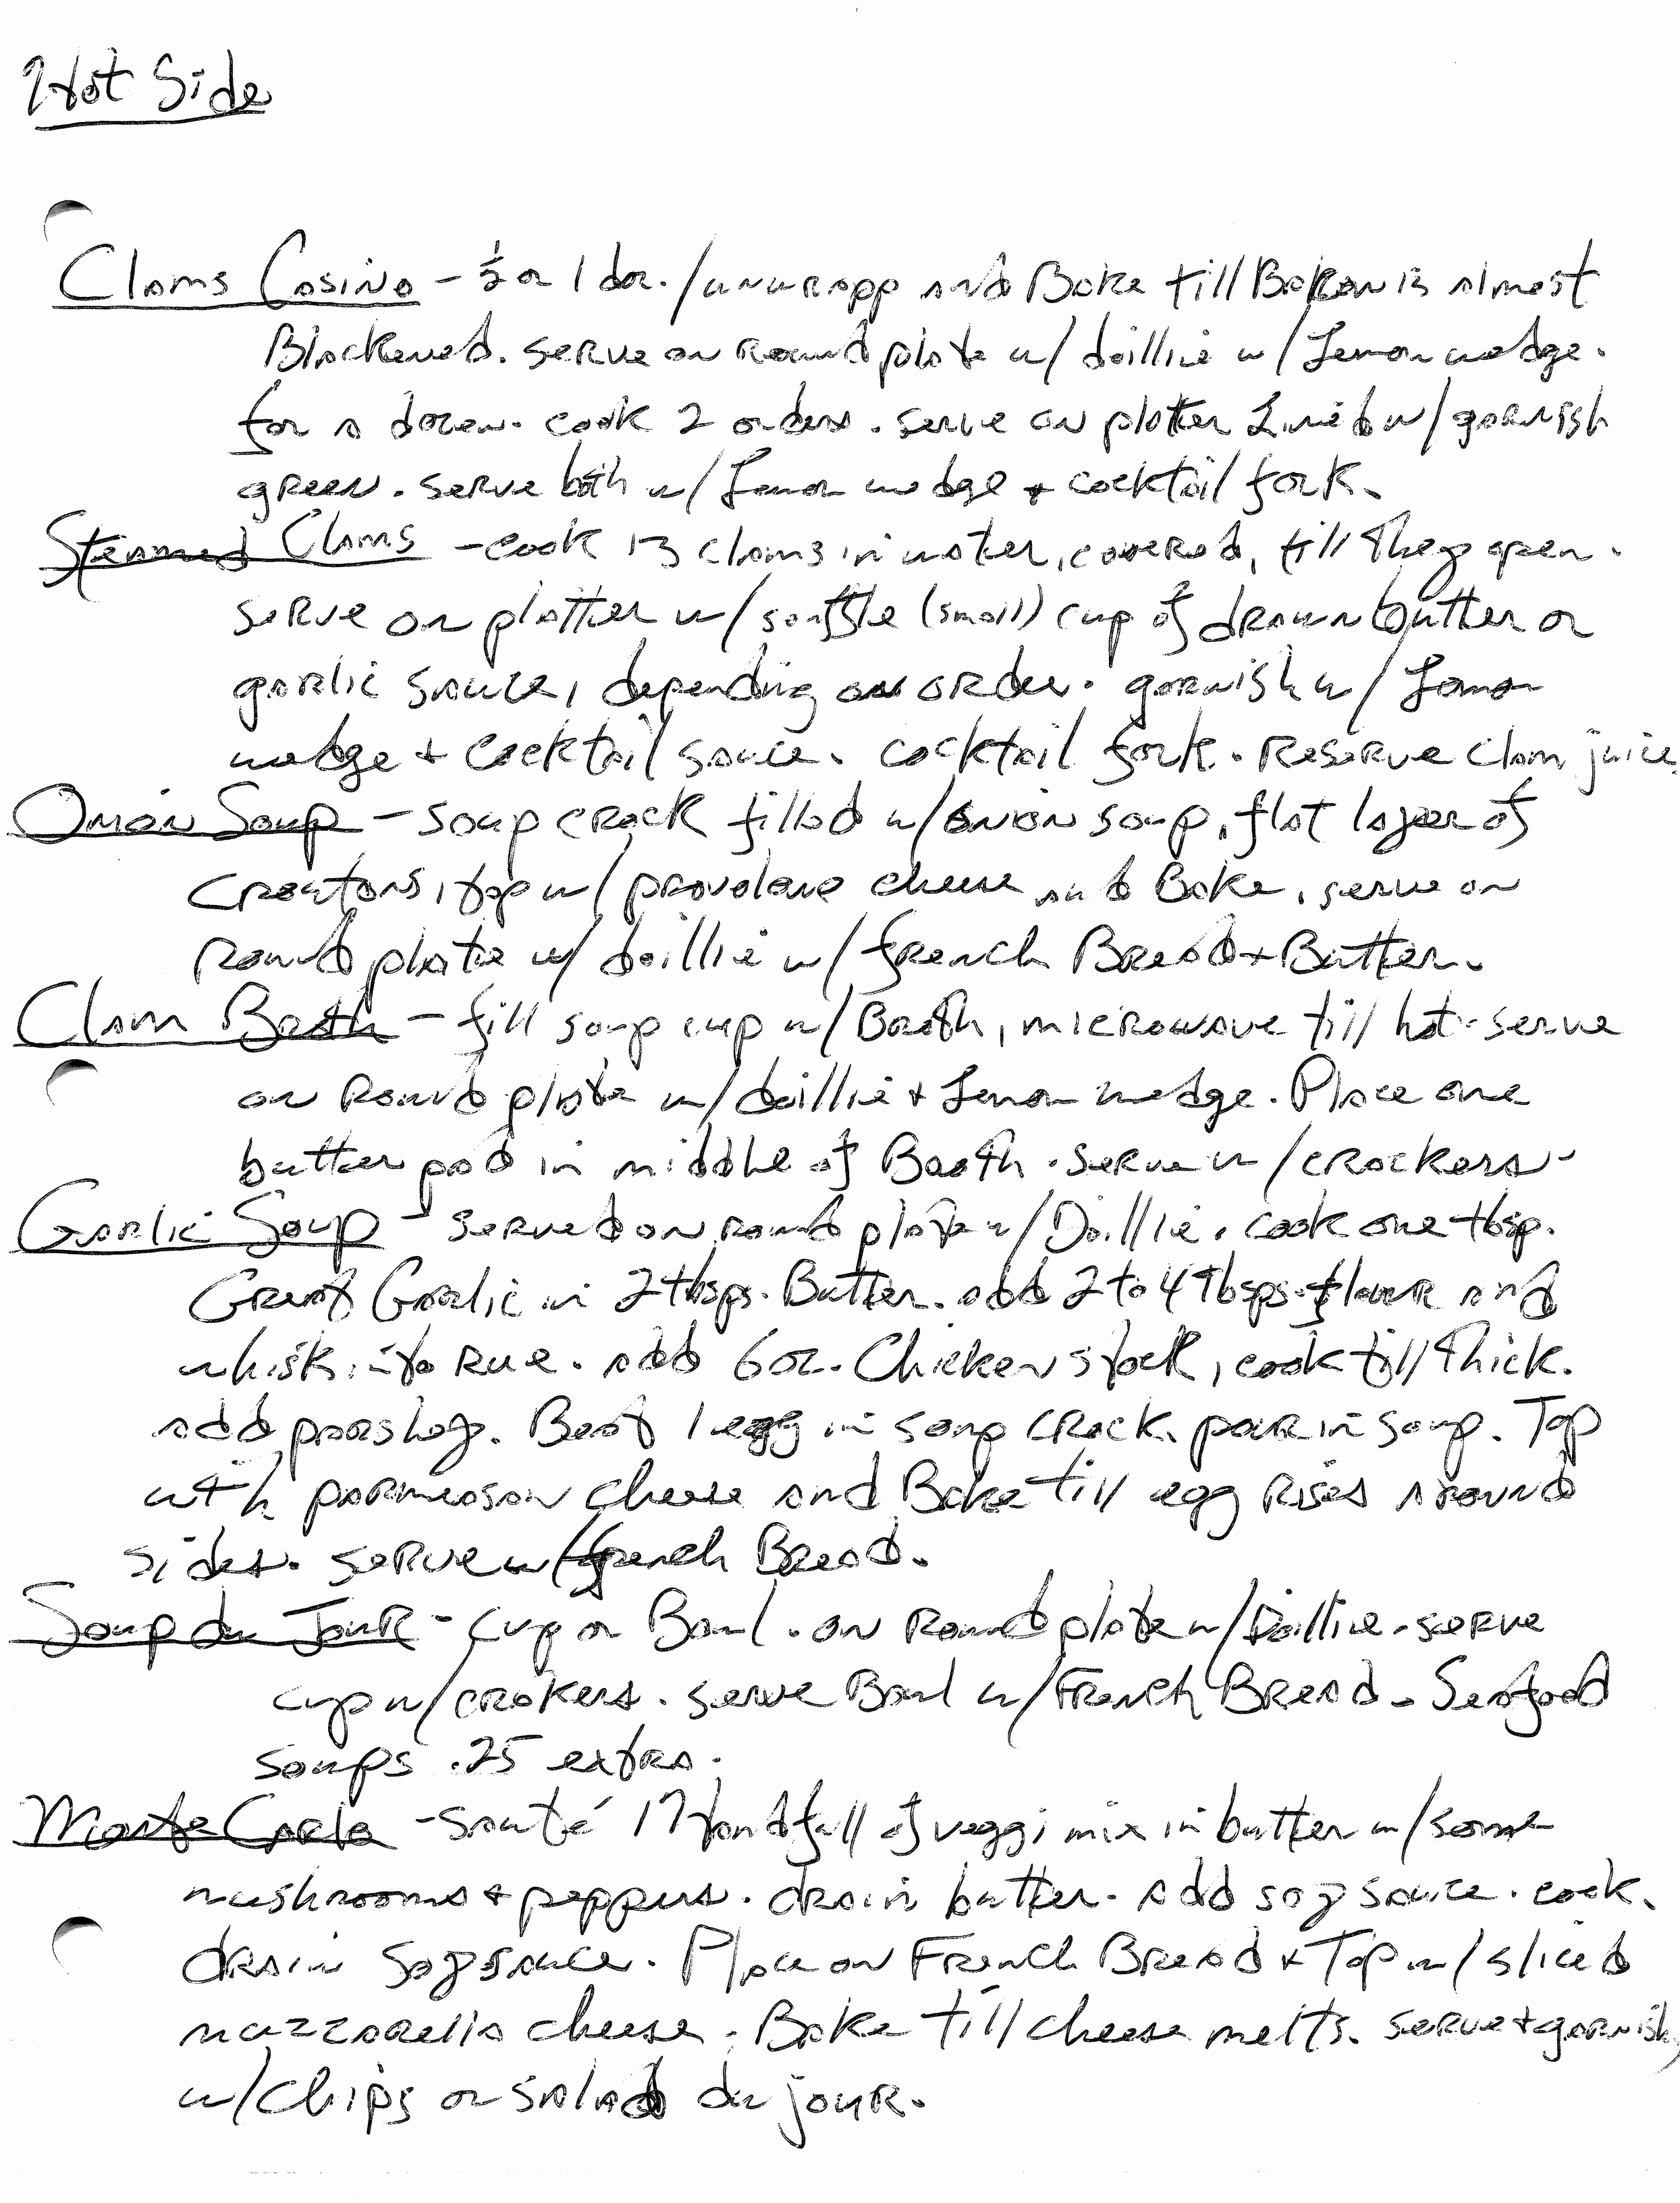 Hot Side
Clams Casino - ½ or 1 doz. / unwrapp and Bake till Bakon is almost
Blackened. serve on round plate w/ doillie w/ Lemon wedge.
for a dozen. cook 2 orders. serve on platter Lined w/ garnish
green. serve both w/ Lemon wedge + cocktail fork.
Steamed Clams - cook 13 clams in water, covered, till they open.
serve on platter w/ souffle (small) cup of drawn butter or
garlic sauce, depending on order. garnish w/ Lemon
wedge + cocktail sauce. cocktail fork. Reserve clam juice.
Onion Soup - soup crock filled w/ onion soup, flat layer of
croutons, top w/ provolone cheese and Bake, serve on
round plate w/ doillie w/ french Bread + Butter.
Clam Broth - fill soup cup w/ Broth, microwave till hot - serve
on round plate w/ doillie + Lemon wedge. Place one
butter pad in middle of Broth. serve w/ crackers -
Garlic Soup - served on round plate w/ Doillie. cook one tbsp.
Great Garlic in 2 tbsps. Butter. add 2 to 4 Tbsps. flour and
whisk into Rue. add 6 oz. Chicken stock, cook till thick.
add parsley. Beat 1 egg in soup crock. pour in soup. Top
with parmeasan cheese and Bake till egg rises around
sides. serve w/ french Bread.
Soup du Jour - cup or Bowl. on round plate w/ Doillie - serve
cup w/ crakers. serve Bowl w/ French Bread - Seafood
soups .25 extra.
Monte Carlo - sauté 1 Handfull of veggi mix in butter w/ some
mushrooms + peppers. drain butter. add soy sauce. cook.
drain soy sauce. Place on French Bread + Top w/ sliced
mozzorella cheese. Bake till cheese melts. serve + garnish
w/ chips or salad du jour.